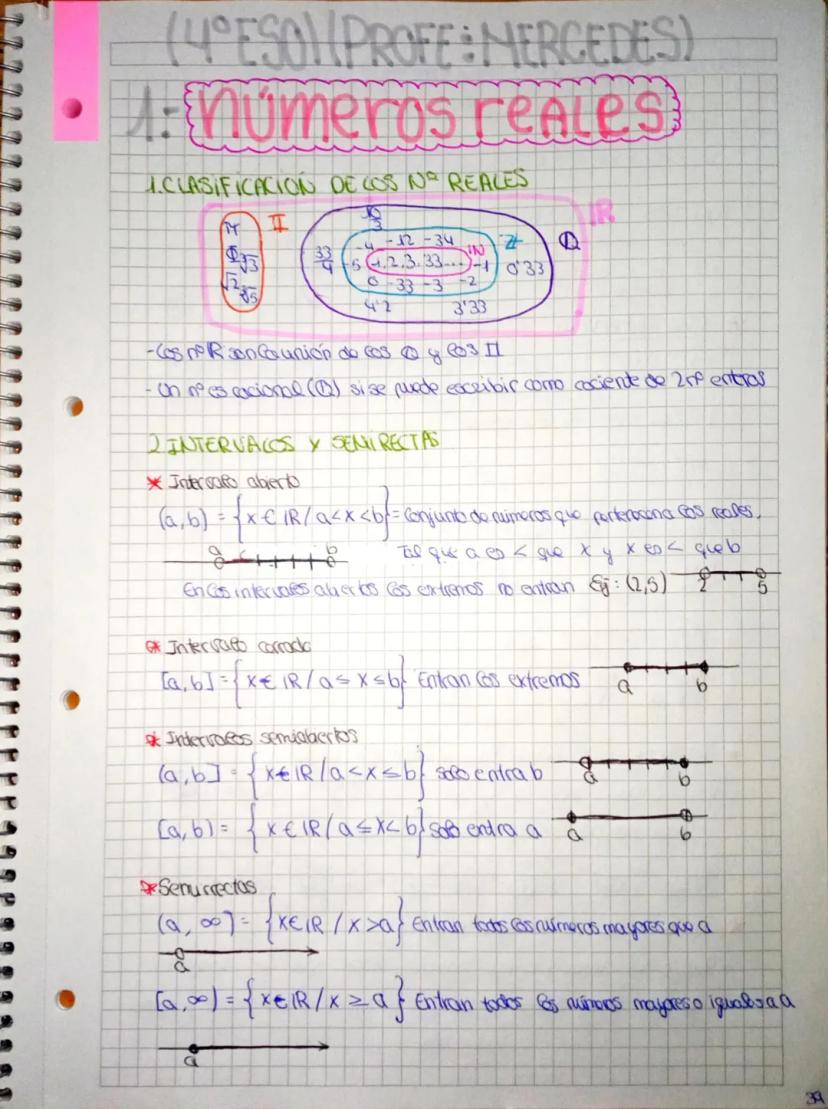 (4º ESO) (PROFE: MERCEDES)
1: Números reales
1. CLASIFICACIÓN DE LOS Nº REALES
π
Φ ∛3
√2 ∛5
II
10/3
-4 -12 -34
33/4 -5 1, 2, 3, 33... -1 0'33
0 -33 -3 -2
4'2 3'33
IN
Z
Q
IR
- Los nº R son la unión de los Q y los II
- Un nº es racional (Q) si se puede escribir como cociente de 2 nº entros
2 INTERVALOS Y SEMIRECTAS
* Intervalo abierto
(a, b) = {x ∈ IR / a < x < b} = Conjunto de números que pertenecen a los reales,
a b Tal que a es < que x y x es < que b
En los intervalos abiertos los extremos no entran Ej: (2,5) 2 5
* Intervalo cerrado
[a, b] = {x ∈ IR / a ≤ x ≤ b} Entran los extremos
a b
* Intervalos semiabiertos
(a, b] = {x ∈ IR / a < x ≤ b} solo entra b
a b
[a, b) = {x ∈ IR / a ≤ x < b} solo entra a
a b
* Semirrectas
(a, ∞) = {x ∈ IR / x > a} Entran todos los números mayores que a
a
[a, ∞) = {x ∈ IR / x ≥ a} Entran todos los números mayores o iguales a a
a